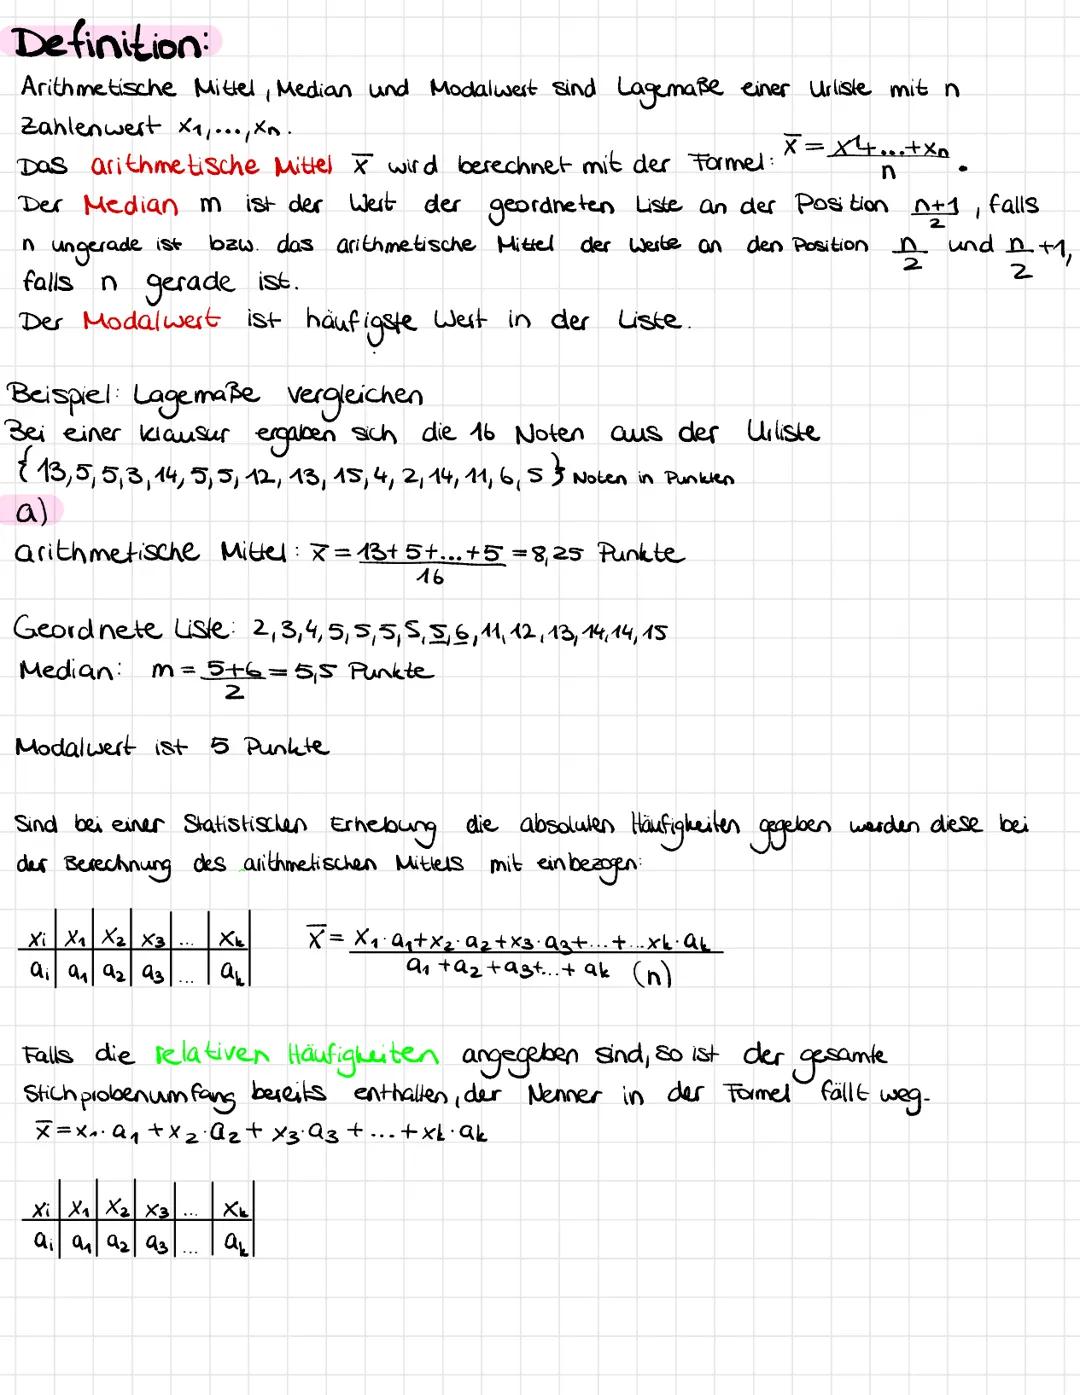 Definition:
Arithmetische Mittel, Median und Modalwert sind Lagemaße einer Urliste mit n
Zahlenwert x₁,...,xn.
Das arithmetische Mittel x̅ wird berechnet mit der Formel: x̅ = x1+...+xn / n .
Der Median m ist der Wert der geordneten Liste an der Position n+1 / 2, falls
n ungerade ist bzw. das arithmetische Mittel der Werte an den Position n/2 und n/2 +1,
falls n gerade ist.
Der Modalwert ist häufigste Wert in der Liste.
Beispiel: Lagemaße vergleichen
Bei einer Klausur ergaben sich die 16 Noten aus der Urliste
{13,5,5,3,14,5,5,12,13,15,4,2,14,11,6,5} Noten in Punkten
a)
arithmetische Mittel: x̅ = 13+5+...+5 / 16 = 8,25 Punkte
Geordnete Liste: 2,3,4,5,5,5,5,5,5,6,11,12,13,14,14,15
Median: m = 5+6 / 2 = 5,5 Punkte
Modalwert ist 5 Punkte
Sind bei einer Statistischen Erhebung die absoluten Häufigkeiten gegeben werden diese bei
der Berechnung des arithmetischen Mittels mit einbezogen:
xi | x₁ | x₂ | x₃ | ... | xk
ai | a₁ | a₂ | a₃ | ... | ak
x̅ = x₁·a₁+x₂·a₂+x₃·a₃+...+...xk·ak / a₁+a₂+a₃+...+ak (n)
Falls die relativen Häufigkeiten angegeben sind, so ist der gesamte
Stichprobenumfang bereits enthalten, der Nenner in der Formel fällt weg.
x̅ = x₁·a₁+x₂·a₂+x₃·a₃+...+xk·ak
xi | x₁ | x₂ | x₃ | ... | xk
ai | a₁ | a₂ | a₃ | ... | ak